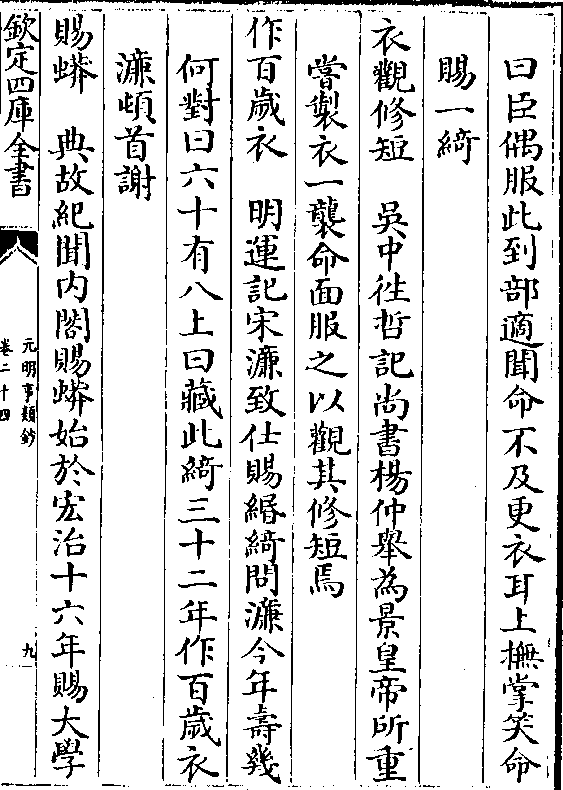 曰臣偶服此到部適聞命不及更衣耳上撫掌笑命
賜一綺
衣觀修短　吳中徃哲記尚書楊仲舉為景皇帝所重
嘗製衣一襲命面服之以觀其修短焉
作百歲衣　明運記宋濂致仕賜緡綺問濂今年壽幾
何對曰六十有八上曰藏此綺三十二年作百歲衣
濂頓首謝
賜蟒　典故紀聞内閣賜蟒始於宏治十六年賜大學
欽定四庫全書
元明事類鈔
卷二十四
九